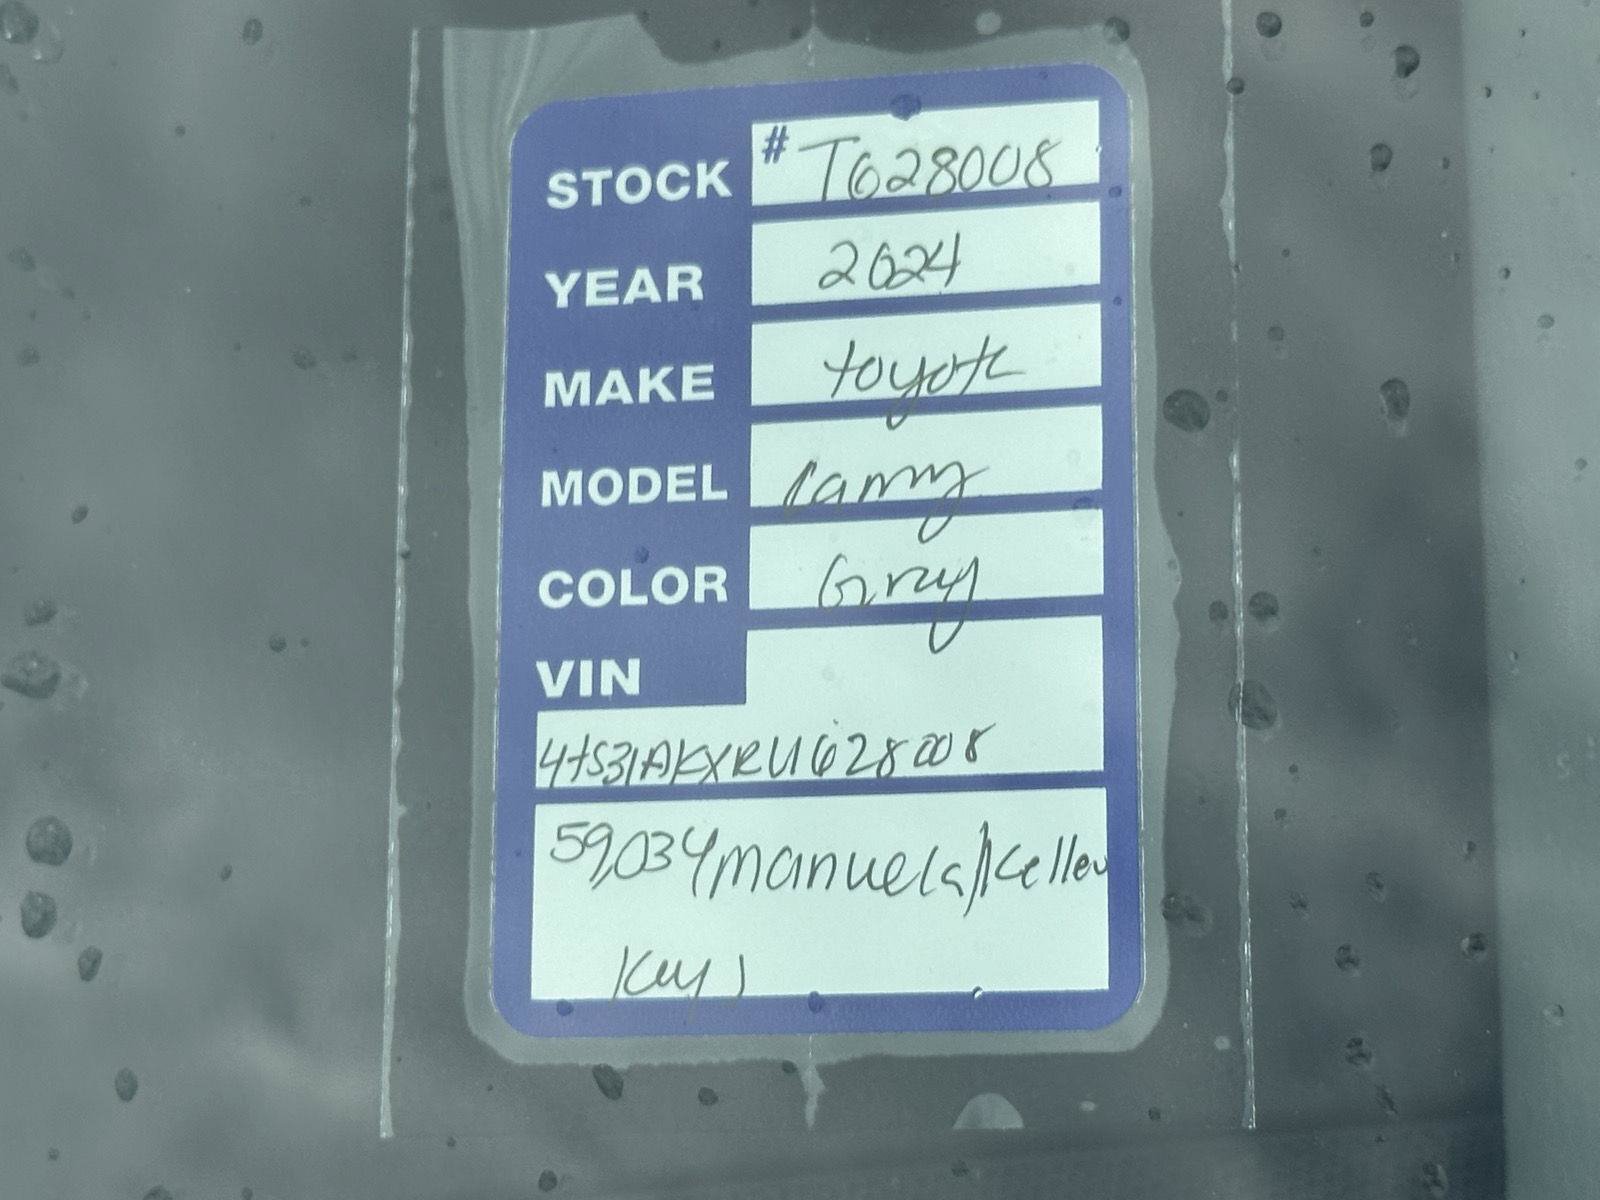 STOCK # T628008
YEAR 2024
MAKE toyota
MODEL Camry
COLOR Gray
VIN
4tS31AKXRU628008
59,034 manuela/Keller
Key 1